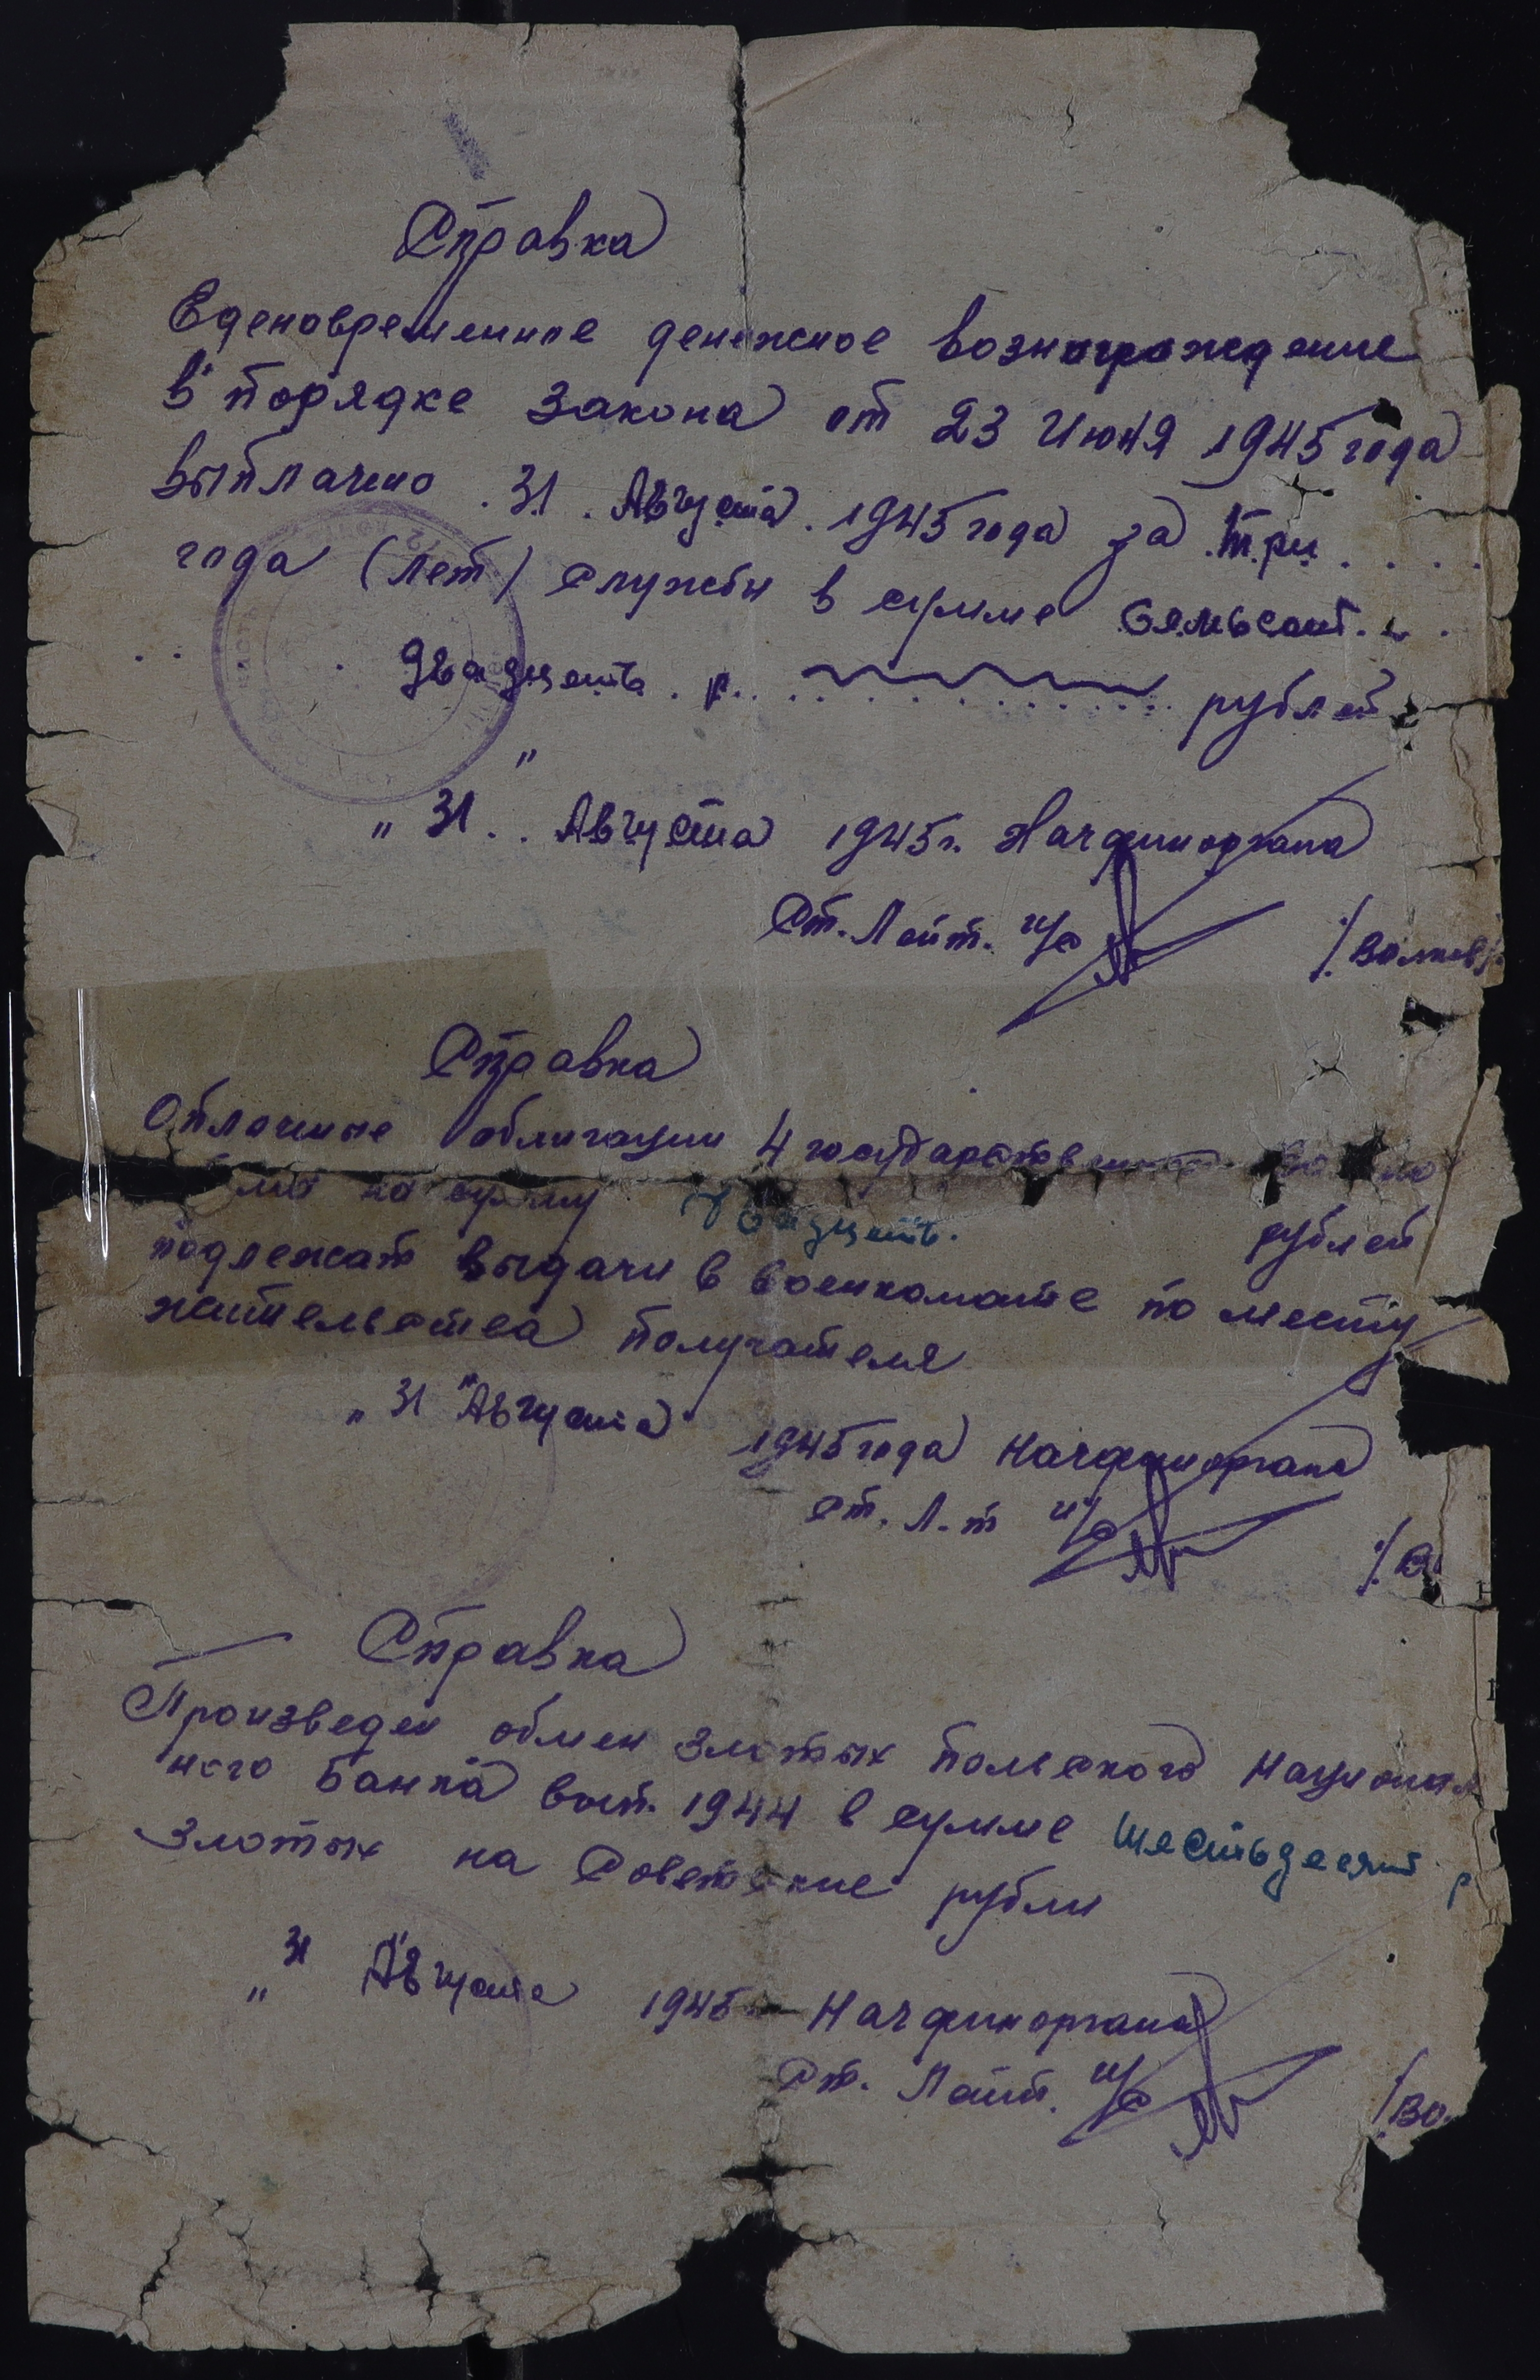 Справка
Еденовременное денежное вознаграждение
в порядке закона от 23 Июня 1945 года
выплачено . 31 . Августа . 1945 года за .три . . . .
года (лет) службы в сумме Сямьсот. . .
. . . Двадцать . р. . . рублей
"
" 31 . . Августа 1945 г. Начфиноргана
Ст. Лейт. и/с /. Волков /.
Справка
Оплаченые облигации 4 государствен
на сумму Двадцать. рублей
подлежат выдачи в военкомате по месту
жительства получателя
" 31 " Августа 1945 года Начфиноргана
Ст. Л-т и/с /. В
Справка
Произведен обмен злотых польского Национал
ного Банка вып. 1944 в сумме шестьдесят р
Злотых на Советские рубли
" 31 Августа 1945 Начфиноргана
Ст. Лейт. и/с /. Во